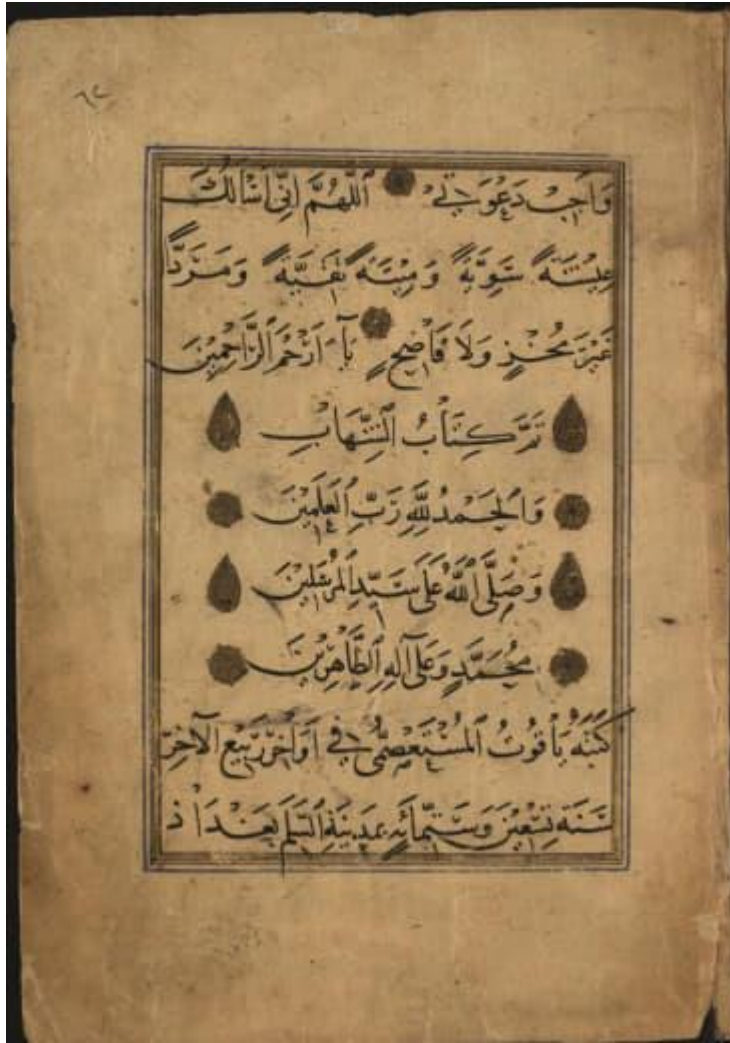 ٦٢
وَاَجِبْ دَعْوَتِي اَللّٰهُمَّ اِنِّي اَسْأَلُكَ
عِيشَةً سَوِيَّةً وَمِيتَةً نَقِيَّةً وَمَرَدًّا
غَيْرَ مُخْزٍ وَلَا فَاضِحٍ يَا اَرْحَمَ الرَّاحِمِينَ
تَمَّ كِتَابُ الشِّهَابِ
وَالْحَمْدُ لِلّٰهِ رَبِّ الْعٰلَمِينَ
وَصَلَّى اللّٰهُ عَلَى سَيِّدِ الْمُرْسَلِينَ
مُحَمَّدٍ وَعَلَى آلِهِ الطَّاهِرِينَ
كَتَبَهُ يَاقُوتُ الْمُسْتَعْصِمِيُّ فِي اَوَاخِرِ رَبِيعِ الْآخِرِ
سَنَةَ تِسْعِينَ وَسِتِّمِائَةٍ بِمَدِينَةِ السَّلٰمِ بَغْدَاذ